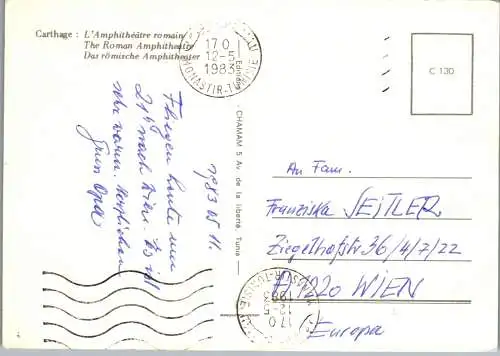 Carthage : L'Amphithéâtre romain
The Roman Amphitheatre
Das römische Amphitheater
170
12-5
1983
MONASTIR-TUNISIE
C 130
Editions CHAMAM 5 Av. de la liberté, Tunis
1983 05 11.
Fliegen heute um
21h nach Wien. Es ist
sehr warm. Herzlichen
Gruß Opa
An Fam.
Franziska SEITLER
Ziegelhofstr 36/4/7/22
A 1220 WIEN
Europa